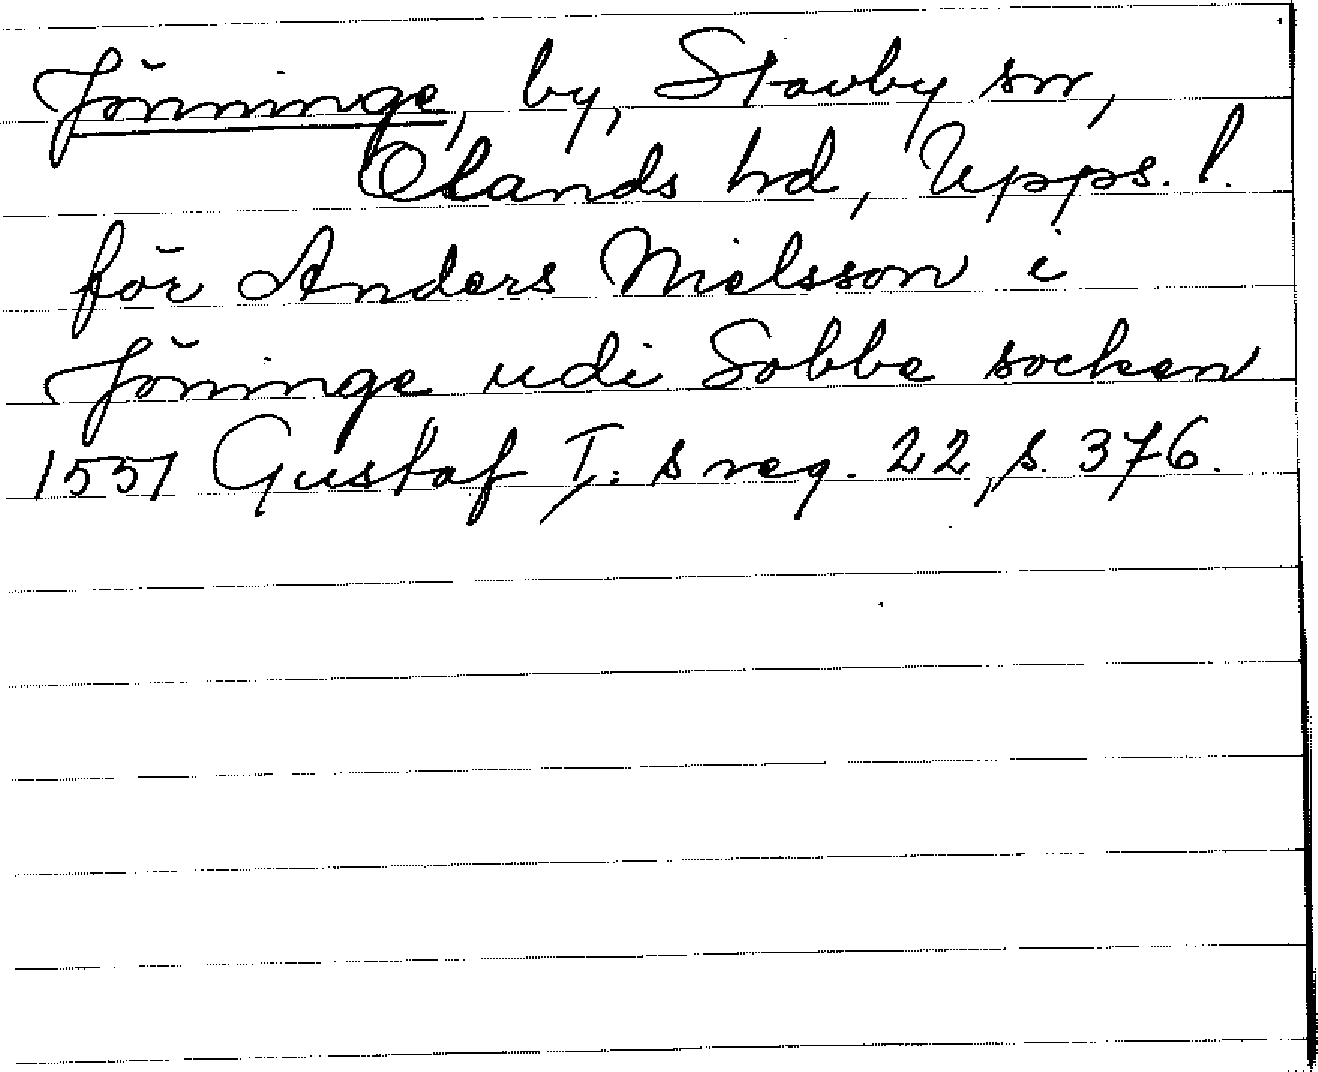 Jönninge, by, Stavby sn,
Olands hd, Upps. l.
för Anders Nielsson i
Jöninge udi Sobbe socken
1551 Gustaf I:s reg. 22, s. 376.